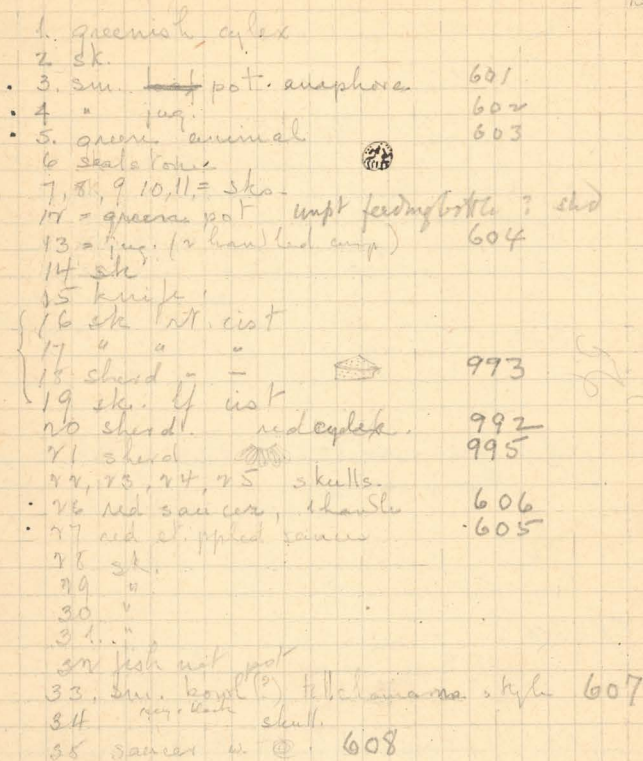 1. greenish cylex
2 sk.
3. sm. pot. amaphore 601
4 " jug. 602
5. green animal 603
6 sealstone
7, 8, 9 10, 11, = sks.
12 = green pot impt feeding bottle ? shd
13 = jug. (2 handled amp) 604
14 sk
15 knife.
16 sk rt. cist
17 " " "
18 sherd - - 993
19 sk. lf cist
20 sherd. red cylex. 992
21 sherd 995
22, 23, 24, 25 skulls.
26 red saucer, 1 handle 606
27 red stippled saucer 605
28 sk.
29 "
30 "
31. "
32 fish net pot
33. sm. bowl (?) style 607
34 grey & black skull.
35 saucer w. 608